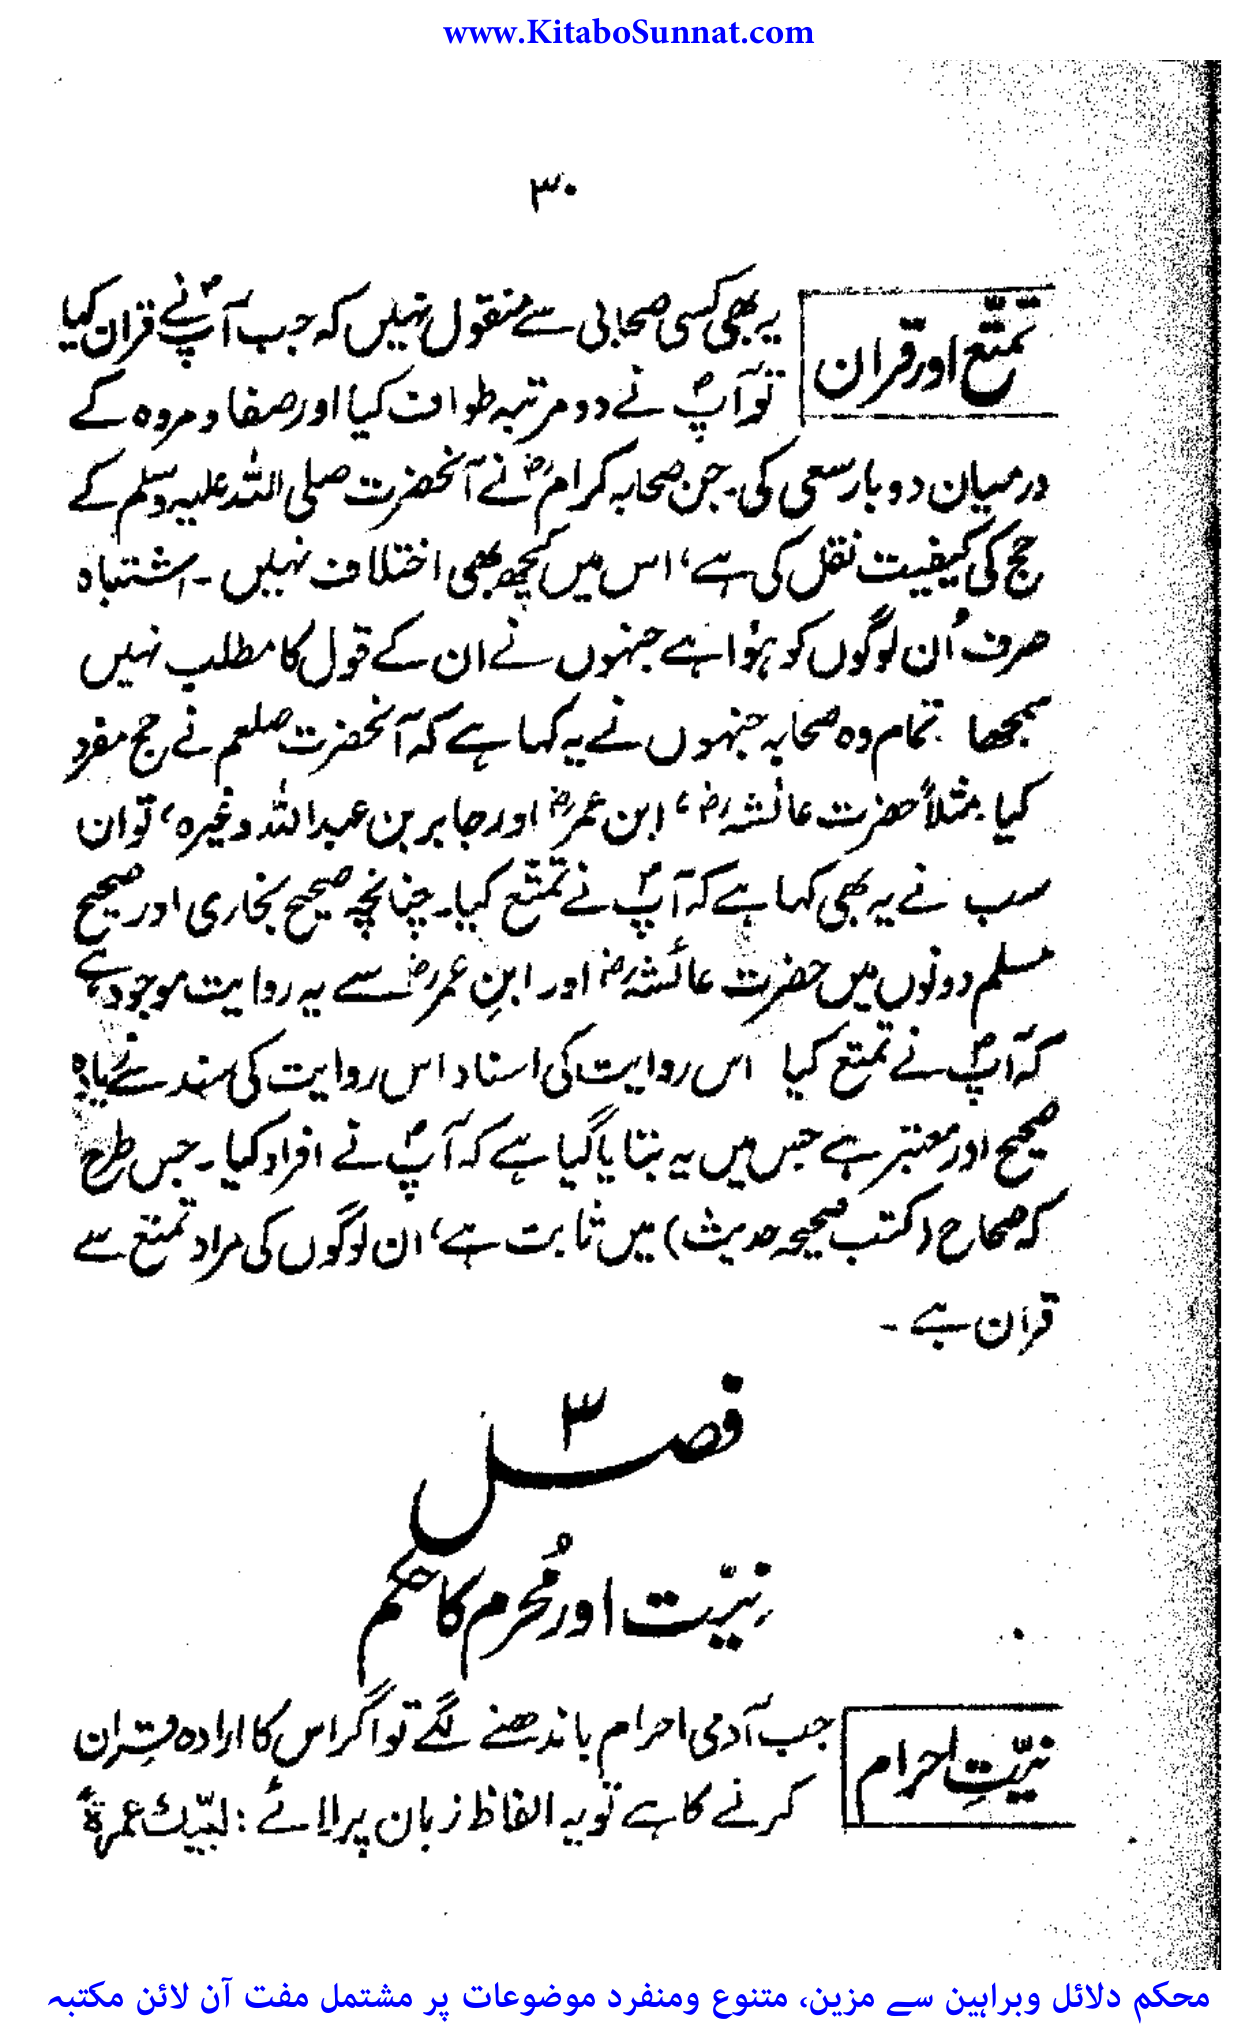 www.KitaboSunnat.com
۳۰
تمتّع اور قران
یہ بھی کسی صحابی سے منقول نہیں کہ جب آپؐ نے قران کیا
تو آپؐ نے دو مرتبہ طواف کیا اور صفا و مروہ کے
درمیان دو بار سعی کی۔ جن صحابہ کرامؓ نے آنحضرت صلی اللہ علیہ وسلم کے
حج کی کیفیت نقل کی ہے، اس میں کچھ بھی اختلاف نہیں ۔ اشتباہ
صرف اُن لوگوں کو ہؤا ہے جنہوں نے ان کے قول کا مطلب نہیں
سمجھا تمام وہ صحابہ جنہوں نے یہ کہا ہے کہ آنحضرت صلعم نے حج مفرد
کیا مثلاً حضرت عائشہؓ، ابن عمرؓ اور جابر بن عبداللہ وغیرہ، تو ان
سب نے یہ بھی کہا ہے کہ آپؐ نے تمتّع کیا۔ چنانچہ صحیح بخاری اور صحیح
مسلم دونوں میں حضرت عائشہؓ اور ابنِ عمرؓ سے یہ روایت موجود ہے
کہ آپؐ نے تمتع کیا اس روایت کی اسناد اس روایت کی سند سے زیادہ
صحیح اور معتبر ہے جس میں یہ بتایا گیا ہے کہ آپؐ نے افراد کیا ۔ جس طرح
کہ صحاح (کتب صحیحہ حدیث) میں ثابت ہے، ان لوگوں کی مراد تمتع سے
قران ہے ۔
فصل ۳
نیّت اور مُحرم کا حکم
نیّتِ احرام
جب آدمی احرام باندھنے لگے تو اگر اس کا ارادہ قِران
کرنے کا ہے تو یہ الفاظ زبان پر لائے : لبّیك عمرۃً
محکم دلائل وبراہین سے مزین، متنوع ومنفرد موضوعات پر مشتمل مفت آن لائن مکتبہ